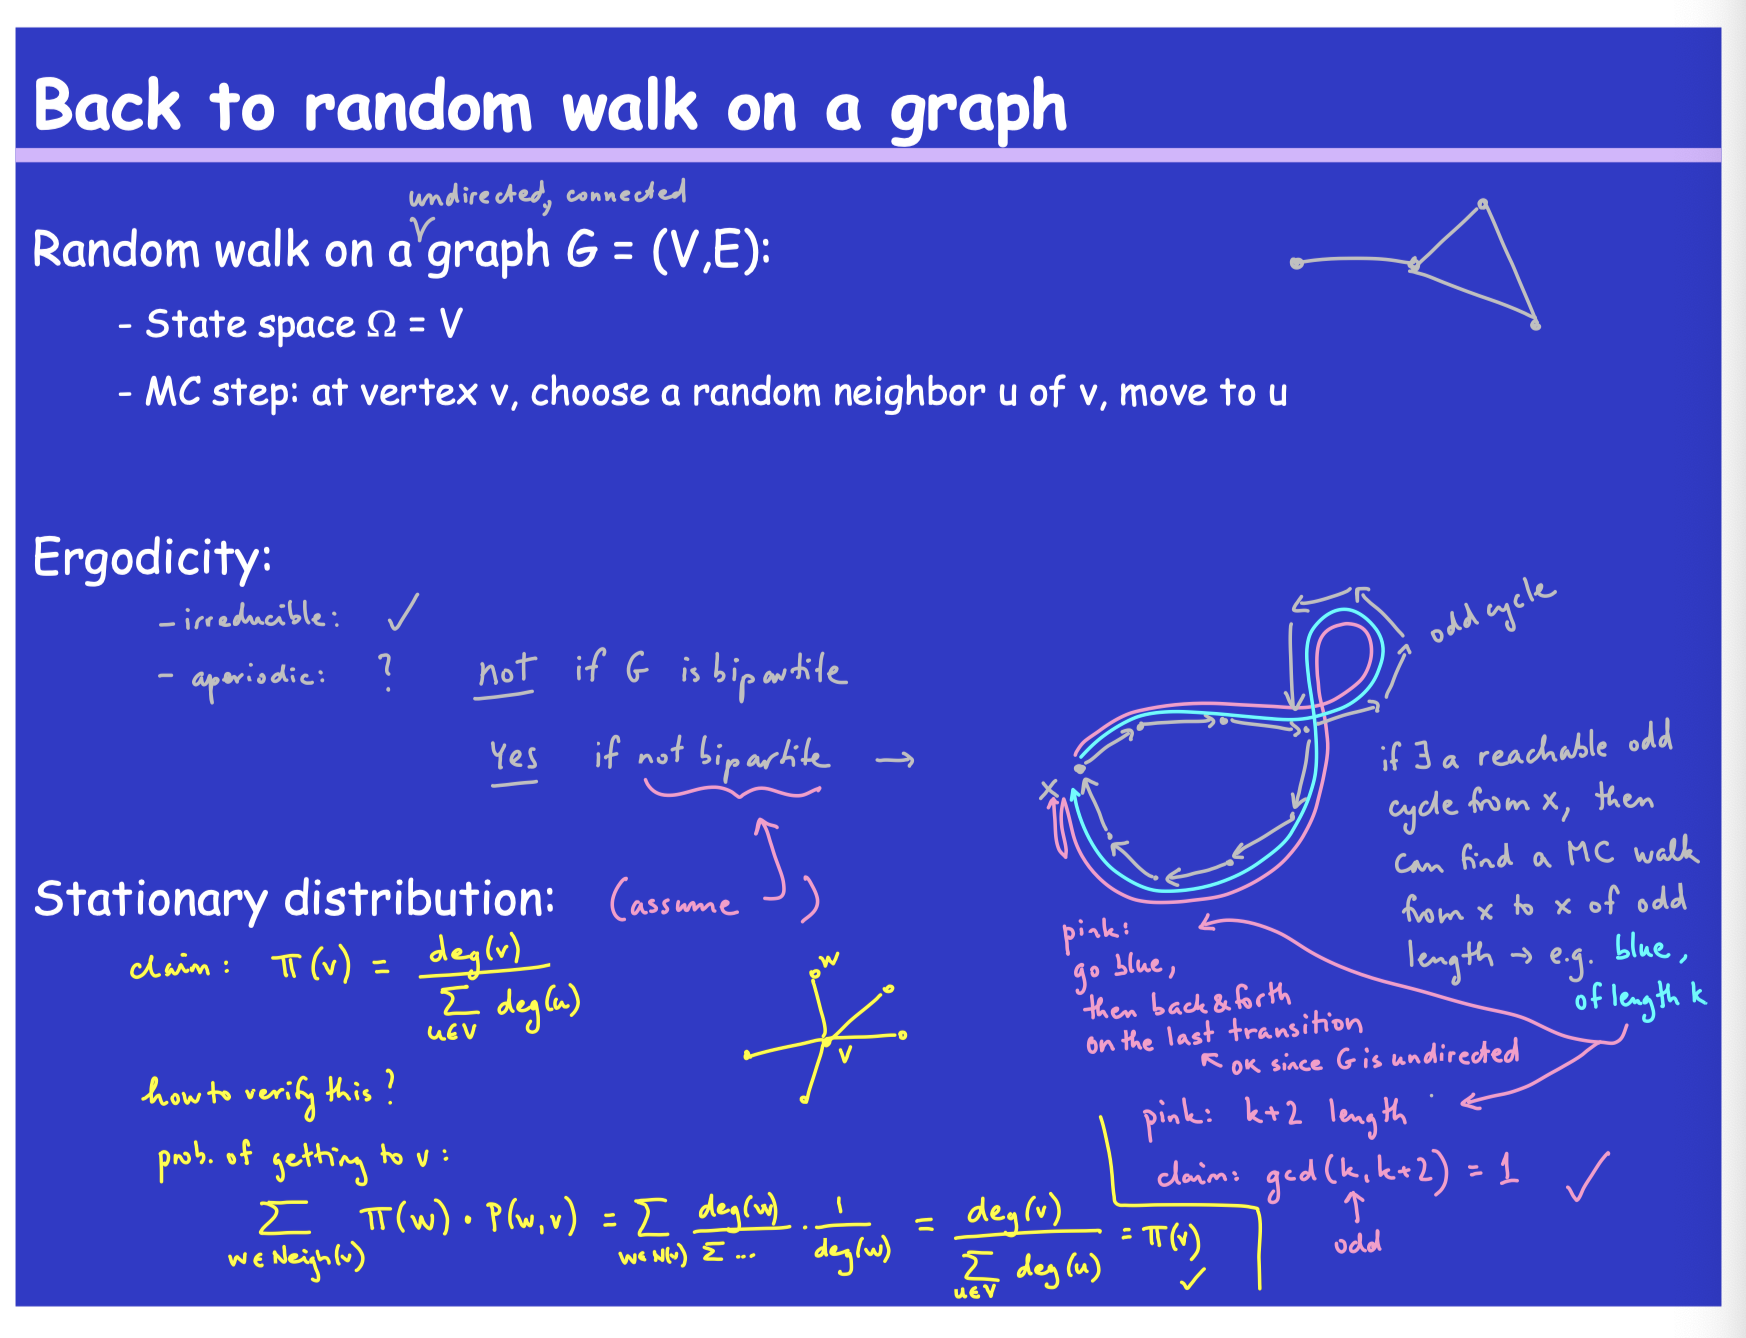 Back to random walk on a graph
undirected, connected
Random walk on a graph G = (V,E):
- State space Ω = V
- MC step: at vertex v, choose a random neighbor u of v, move to u
Ergodicity:
- irreducible: ✓
- aperiodic: ? not if G is bipartite
Yes if not bipartite →
odd cycle
x
if ∃ a reachable odd
cycle from x, then
can find a MC walk
from x to x of odd
length → e.g. blue,
of length k
pink:
go blue,
then back & forth
on the last transition
↖ OK since G is undirected
pink: k+2 length
claim: gcd(k, k+2) = 1 ✓
↑
odd
Stationary distribution: (assume )
claim: π(v) = deg(v) / Σ_{u∈V} deg(u)
w
v
how to verify this?
prob. of getting to v:
Σ_{w∈Neigh(v)} π(w) · P(w,v) = Σ_{w∈N(v)} deg(w) / Σ ... · 1 / deg(w) = deg(v) / Σ_{u∈V} deg(u) = π(v) ✓